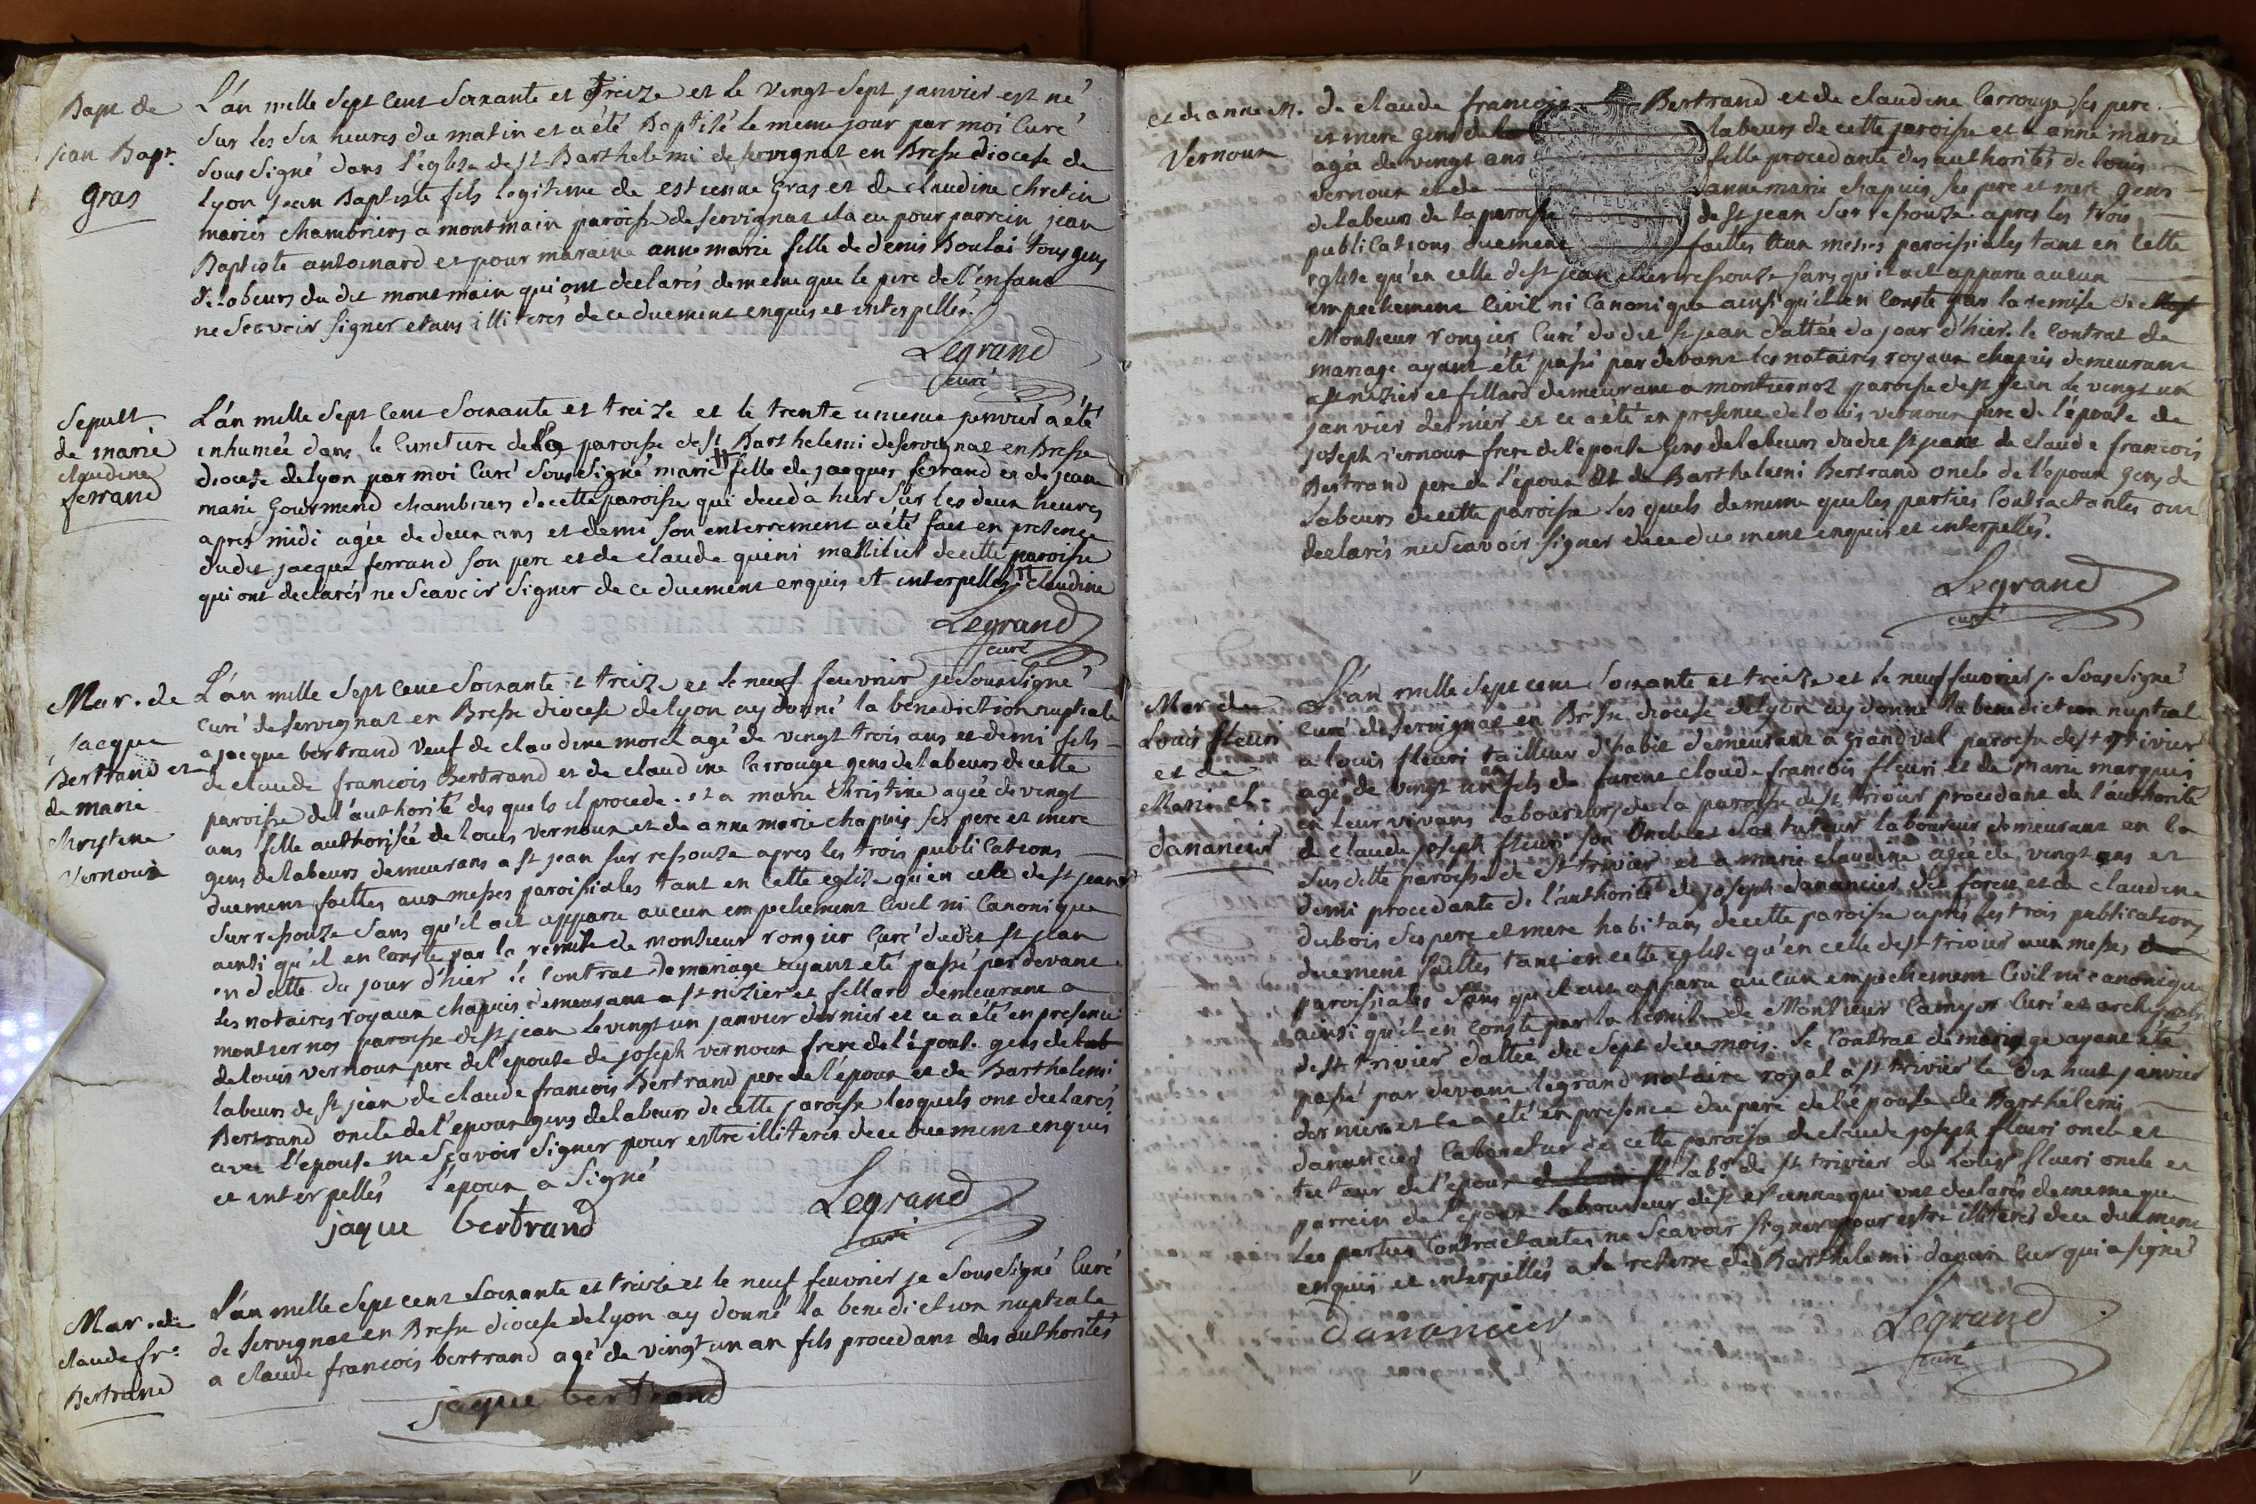 Bapt de
jean Bapt.
gras
L'an mille sept cent soixante et treize et le vingt sept janvier est né
sur les dix heures du matin et a été Baptisé le meme jour par moi Curé
sous signé dans l'église de st Barthelemi de servignat en Bresse diocese de
lyon jean Baptiste fils legitime de estienne gras et de claudine chretin
mariés chambriers a montmain paroisse de servignat il a eu pour parrein jean
Baptiste antoinard et pour maraine anne marie fille de denis Boulai tous gens
de labeurs du dit montmain qui ont declarés de meme que le pere de l'enfant
ne scavoir signer etans illiterés de ce duement enquis et interpellés.
Legrand
curé
Sepult
de marie
claudine
ferrand
L'an mille sept cent soixante et treize et le trente unieme janvier a été
inhumée dans le cimetiere de la paroisse de st Barthelemi de servignat en Bresse
diocese de lyon par moi Curé sous signé marie # fille de jacques ferrand et de jeane
marie gourmend chambriers de cette paroisse qui deceda hier sur les deux heures
apres midi agée de deux ans et demi son enterrement a été fait en presence
dudit jacque ferrand son pere et de claude quini matillier de cette paroisse
qui ont declarés ne scavoir signer de ce duement enquis et interpellés # claudine
Legrand
curé
Mar. de
jacque
Bertrand et
de marie
christine
vernoux
L'an mille sept cent soixante et treize et le neuf feuvrier je sous signé
Curé de servignat en Bresse diocese de lyon ay donné la benediction nuptiale
a jacque bertrand veuf de claudine morel agé de vingt trois ans et demi fils
de claude francois Bertrand et de claudine Carrouge gens de labeurs de cette
paroisse de l'authorité des quels il procede. et a marie christine agée de vingt
ans fille authorisée de louis vernoux et de anne marie chapuis ses pere et mere
gens de labeurs demeurans a st jean sur ressouze apres les trois publications
duement faittes aux messes paroissiales tant en cette eglise qu'en celle de st jean
sur ressouze sans qu'il ait apparu aucun empechement Civil ni Canonique
ainsi qu'il en conste par la remise de monsieur rongier Curé dudit st jean
en datte du jour d'hier. le contrat de mariage ayant été passé par devant
les notaires royaux chapuis demeurant a st nizier et fillard demeurant a
montsernos paroisse de st jean le vingt un janvier dernier et ce a été en presence
de louis vernoux pere de l'epouse de joseph vernoux frere de l'épouse gens de lab
labeurs de st jean de claude francois Bertrand pere de l'époux et de Barthelemi
Bertrand oncle de l'epoux gens de labeurs de cette paroisse lesquels ont declarés
avec l'epouse ne scavoir signer pour estre illiterés de ce duement enquis
et interpellés l'époux a signé
jaque bertrand
Legrand
curé
Mar. de
claude fr.
Bertrand
L'an mille sept cent soixante et treize et le neuf feuvrier je sous signé Curé
de servignat en Bresse diocese de lyon ay donné la benediction nuptiale
a claude francois bertrand agé de vingt un an fils procedant des authorités
jaque bertrand
et de anne M.
Vernoux
de claude francois Bertrand et de claudine Carrouge ses pere
et mere gens de labeurs de cette paroisse et a anne marie
agée de vingt ans fille procedante des authorités de louis
vernoux et de anne marie chapuis ses pere et mere gens
de labeurs de la paroisse de st jean sur ressouze. apres les trois
publications duement faittes aux messes paroissiales tant en cette
eglise qu'en celle de st jean sur ressouze sans qu'il ait apparu aucun
empechement Civil ni Canonique ainsi qu'il en conste par la remise de
Monsieur rongier Curé dudit st jean dattée du jour d'hier. le contrat de
mariage ayant été passé par devant les notaires royaux chapuis demeurant
a st nizier et fillard demeurant a montsernos paroisse de st jean le vingt un
janvier dernier et ce a été en presence de louis vernoux pere de l'épouse de
joseph vernoux frere de l'épouse gens de labeurs dudit st jean de claude francois
Bertrand pere de l'époux et de Barthelemi Bertrand oncle de l'époux gens de
labeurs de cette paroisse les quels de meme que les parties Contractantes ont
declarés ne scavoir signer de ce duement enquis et interpellés.
Legrand
curé
Mar. de
Louis fleuri
et de
Marie cl.
danancier
L'an mille sept cent soixante et treize et le neuf feuvrier je sous signé
Curé de servignat en Bresse diocese de lyon ay donné la benediction nuptial
a louis fleuri tailleur d'habit demeurant a grandval paroisse de st trivier
agé de vingt un an fils de furent claude francois fleuri et de marie marquis
en leur vivans laboureurs de la paroisse de st trivier procedant de l'authorité
de claude joseph fleuri son oncle et son tuteur laboureur demeurant en la
susditte paroisse de st trivier et a marie claudine agée de vingt ans et
demi procedante de l'authorité de joseph danancier dit foret et de claudine
dubois ses pere et mere habitans de cette paroisse apres les trois publications
duement faittes tant en cette eglise qu'en celle de st trivier aux messes
paroissiales sans qu'il ait apparu aucun empechement Civil ni canonique
ainsi qu'il en conste par la remise de Monsieur Camyer Curé et archiprêtre
de st trivier dattée du sept de ce mois. le Contrat de mariage ayant été
passé par devant legrand notaire royal a st trivier le dix huit janvier
dernier et ce a été en presence du pere de l'épouse de Barthelemi
dananciers laboureur de cette paroisse de claude joseph fleuri oncle et
tuteur de l'époux labr de st trivier de louis fleuri oncle et
parrein de l'époux laboureur de st estienne qui ont declarés de meme que
les parties Contractantes ne scavoir signer pour estre illiterés de ce duement
enquis et interpellés a la reserve de Barthelemi dananciers qui a signé
dananciers
Legrand
curé